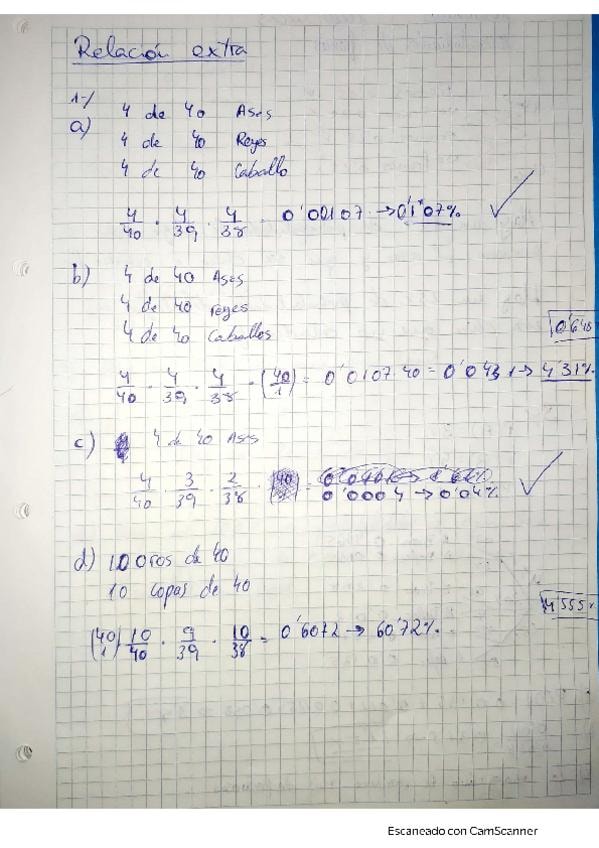 Relación extra
1-/
a) 4 de 40 Ases
4 de 40 Reyes
4 de 40 Caballo
4/40 · 4/39 · 4/38 = 0'00107 → 0'107%
b) 4 de 40 Ases
4 de 40 reyes
4 de 40 Caballos
4/40 · 4/39 · 4/38 · (40/1) = 0'0107·40 = 0'0431 → 4'31%
c) 4 de 40 Ases
4/40 · 3/39 · 2/38 =
0'0004 → 0'04%
d) 10 oros de 40
10 copas de 40
4'555
(40/1) 10/40 · 9/39 · 10/38 = 0'6072 → 60'72%
Escaneado con CamScanner